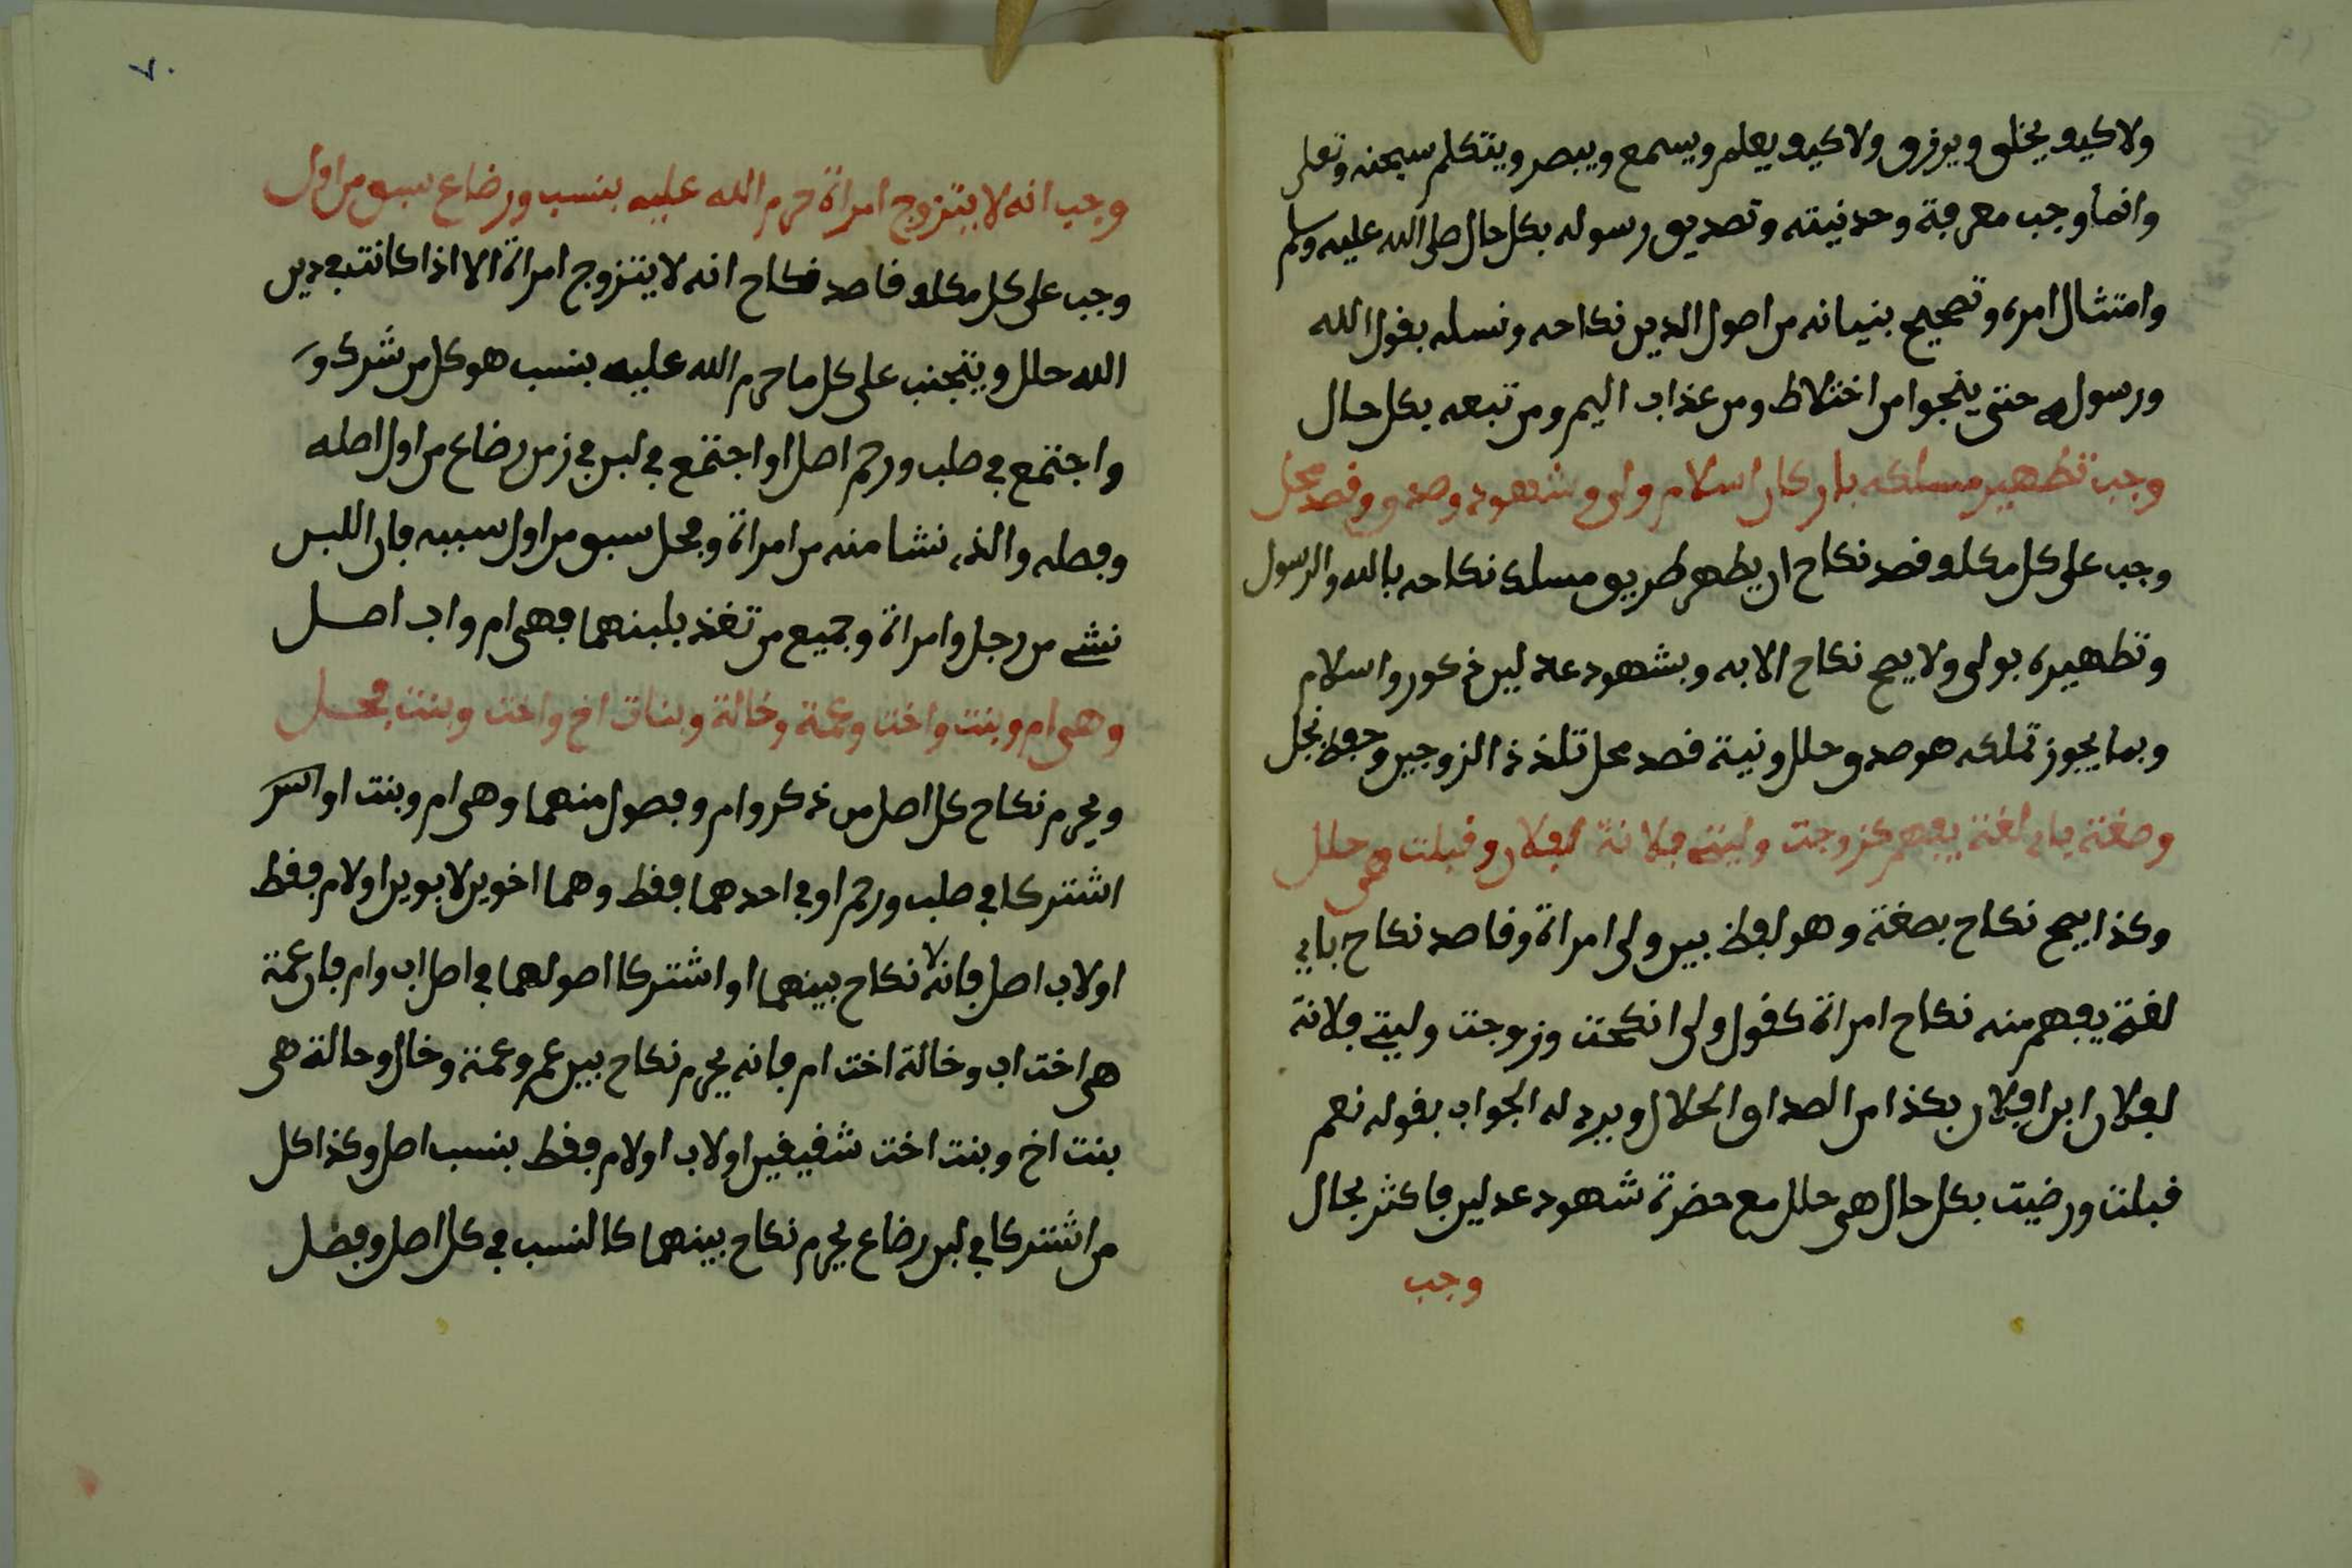 ولا كيف يخلق ويرزق ولا كيف يعلم ويسمع ويبصر ويتكلم سبحنه وتعلى
وانما وجب معرفة وحدنيته وتصديق رسوله بكل حال صلى الله عليه وسلم
وامتثال امره وتصحيح بنيانه من اصول الدين نكاحه ونسله بقول الله
ورسوله حتى ينجوا من اختلاط ومن عذاب اليم ومن تبعه بكل حال
وجب تطهير مسلكه باركان اسلام ولى وشهود وصدق وقصد محل
وجب على كل مكلف قصد نكاح ان يطهر طريق مسلك نكاحه بالله والرسول
وتطهيره بولى ولا يصح نكاح الا به وبشهود عدلين ذكور واسلام
وبما يجوز تملكه هو صدق وحلل ونية قصد محل تلذذ الزوجين وحفظ نجل
وصغة باى لغة يفهم كزوجت وليتى فلانة لفلان وقبلت هى حلل
وكذا يصح نكاح بصغة وهو لفظ بين ولى امراة وقاصد نكاح باى
لغة يفهم منه نكاح امراة كقول ولى انكحت وزوجت وليتى فلانة
لفلان ابن فلان بكذا من الصداق الحلال ويرد له الجواب بقوله نعم
قبلت ورضيت بكل حال هى حلل مع حضرة شهود عدلين فاكثر بحال
وجب
٧٠
وجب انه لا يتزوج امراة حرم الله عليه بنسب ورضاع سبق من اول
وجب على كل مكلف قاصد نكاح انه لا يتزوج امراة الا اذا كانت فى دين
الله حلل ويتجنب على كل ما حرم الله عليه بنسب هو كل من شرك و
واجتمع فى صلب ورحم اصل او اجتمع فى لبن فى زمن رضاع من اول اصله
وفصله والذى نشا منه من امراة وفحل سبق من اول سببه فان اللبن
نشى من رجل وامراة وجميع من تغذ بلبنهما فهى ام واب اصل
وهى ام وبنت واخت وعمة وخالة وبنات اخ واخت وبنت فحل
ويحرم نكاح كل اصل من ذكر وام وفصول منهما وهى ام وبنت او
اشتركا فى صلب ورحم او فى احدهما فقط وهما اخوين لابوين او لام فقط
او لاب اصل فانه لا نكاح بينهما او اشتركا اصولهما فى اصل اب وام فان عمة
هى اخت اب وخالة اخت ام فانه يحرم نكاح بين عم وعمة وخال وخالة هى
بنت اخ وبنت اخت شقيقين او لاب او لام فقط بنسب اصل وكذا كل
من اشتركا فى لبن رضاع يحرم نكاح بينهما كالنسب فى كل اصل وفصل